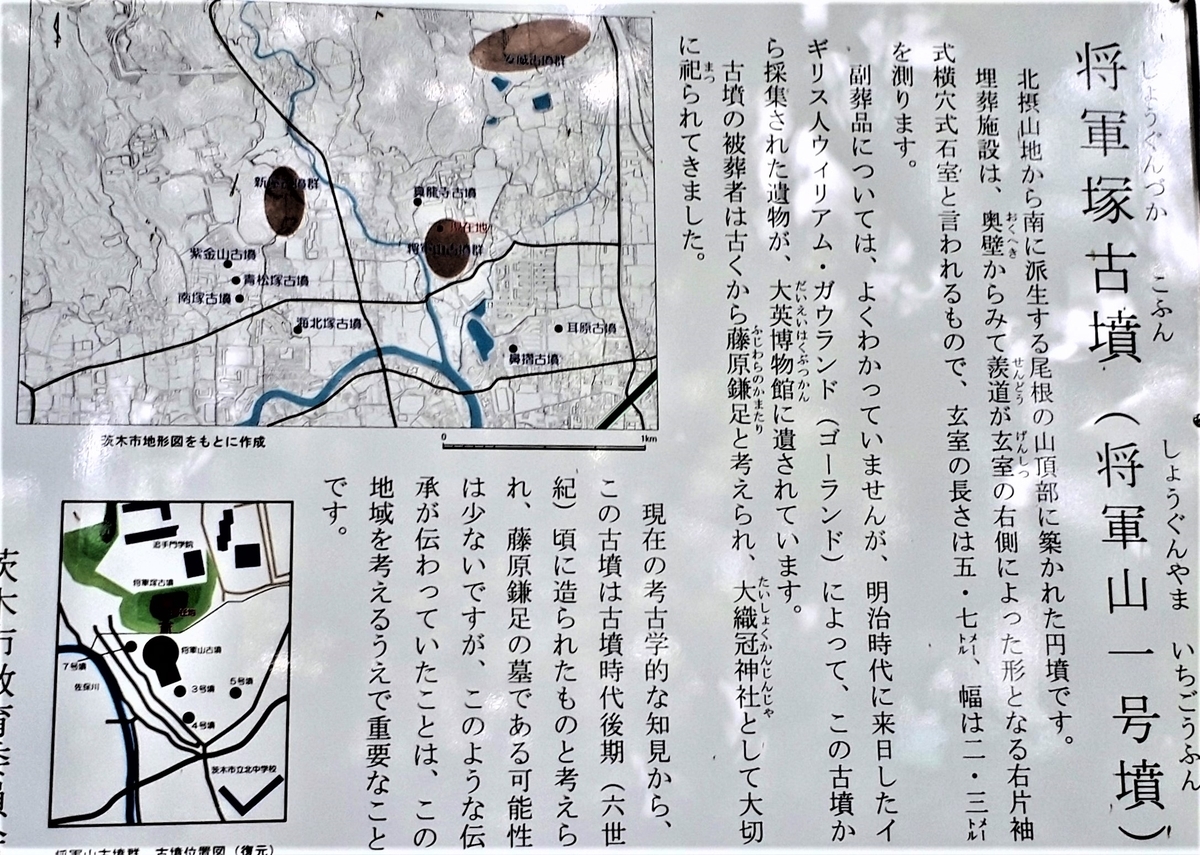 しょうぐんづか こふん しょうぐんやま いちごうふん
将軍塚古墳（将軍山一号墳）
北摂山地から南に派生する尾根の山頂部に築かれた円墳です。
埋葬施設は、奥壁からみて羨道が玄室の右側によった形となる右片袖
おくへき せんどう げんしつ
式横穴式石室と言われるもので、玄室の長さは五・七メートル、幅は二・三メートル
を測ります。
副葬品については、よくわかっていませんが、明治時代に来日したイ
ギリス人ウィリアム・ガウランド（ゴーランド）によって、この古墳か
ら採集された遺物が、大英博物館に遺されています。
だいえいはくぶつかん
古墳の被葬者は古くから藤原鎌足と考えられ、大織冠神社として大切
ふじわらのかまたり たいしょくかんじんじゃ
に祀られてきました。
まつ
現在の考古学的な知見から、
この古墳は古墳時代後期（六世
紀）頃に造られたものと考えら
れ、藤原鎌足の墓である可能性
は少ないですが、このような伝
承が伝わっていたことは、この
地域を考えるうえで重要なこと
です。
安威古墳群
真龍寺古墳
現在地
将軍山古墳群
紫金山古墳
青松塚古墳
南塚古墳
海北塚古墳
耳原古墳
鼻摺古墳
茨木市地形図をもとに作成
0 1km
追手門学院
将軍塚古墳
将軍山古墳
7号墳
佐保川
3号墳
5号墳
4号墳
茨木市立北中学校
将軍山古墳群 古墳位置図（復元）
茨木市教育委員会